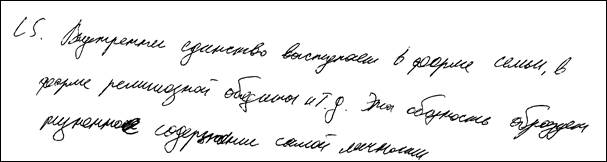 L5. Внутреннее единство выступает в форме семьи, в
форме религиозной общины и т.д. Эта сборность образует
жизненное содержание самой личности